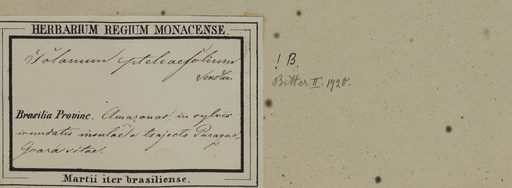 HERBARIUM REGIUM MONACENSE.
Solanum pteleaefolium
Sendtn.
Brasilia Provinc. Amazonas, in sylvis
inundatis insulae
Martii iter brasiliense.
! B.
Bitter II. 1920.